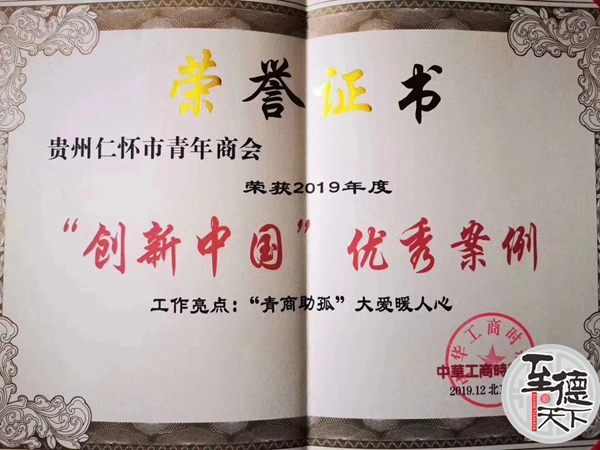 荣誉证书
贵州仁怀市青年商会
荣获2019年度
“创新中国”优秀案例
工作亮点：“青商助孤”大爱暖人心
中华工商时
中華工商時
2019.12 北
至德天下